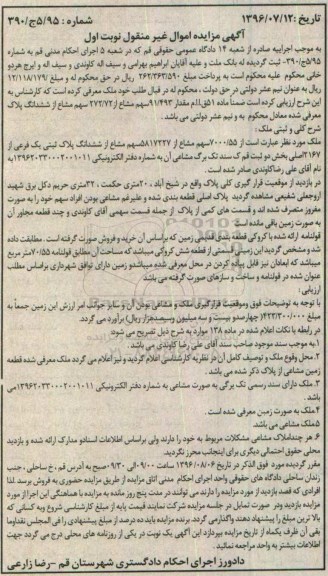 تاریخ: ۱۳۹۶/۰۷/۱۲ شماره: ۵/۹۵ج/۳۹۰
آگهی مزایده اموال غیر منقول نوبت اول
به موجب اجراییه صادره از شعبه ۱۴ دادگاه عمومی حقوقی قم که در شعبه ۵ اجرای احکام مدنی قم به شماره
۵/۹۵ج/۳۹۰- ثبت گردیده له بانک ملت و علیه آقایان ابراهیم بهرامی و سیف اله کاوندی و سیف اله و ایرج هردو
خانی محکوم علیه محکوم است به پرداخت مبلغ ۲۶۲/۳۶۳/۵۹۰ ریال در حق محکوم له و مبلغ ۱۲/۱۱۸/۱۷۹
ریال به عنوان نیم عشر دولتی در حق دولت ، محکوم له در قبال طلب خود ملک معرفی کرده است که کارشناس به
این شرح ارزیابی کرده است ضمناً ماده ۵۱ ق.ا.ا.م مقدار ۴۹۱/۹۳سهم مشاع از ۲۷۲/۷۲سهم مشاع از ششدانگ پلاک
معرفی شده معادل محکوم به و نیم عشر دولتی می باشد .
شرح کلی و ثبتی ملک :
ملک مورد نظر عبارت است از ۷۰۰۰/۵۵سهم مشاع از ۵۸۱۷۲۲۷سهم مشاع از ششدانگ پلاک ثبتی یک فرعی از
۲۱۶۷اصلی بخش دو ثبت قم که سند تک برگ مشاعی آن به شماره دفتر الکترونیکی ۱۳۹۶۲۰۳۳۰۰۰۲۰۰۱۰۱۱به
نام آقای علی رضاکاوندی صادر شده است .
در بازدید از موقعیت قرار گیری کلی پلاک واقع در شیخ آباد ، ۲۰متری حکمت ، ۳۲متری حریم دکل برق شهید
اروجعلی شفیعی مشاهده گردید پلاک اصلی قطعه بندی شده و علیرغم مشاعی بودن افراد سهم خود را به صورت
مفروز متصرف شده اند و قسمت های کمی از پلاک از جمله قسمت سهمی آقای کاوندی و چند قطعه مجاور آن
به صورت زمین باقی مانده است
قولنامه ارائه شده با کروکی قطعه بندی قدیمی زمین که براساس آن خرید و فروش صورت گرفته است . مطابقت داده
شد و مشخص گردید این زمین قسمتی از قطعه شش کروکی میباشد که مساحت آن مطابق قولنامه ۷۰/۵۵متر مربع
میباشد که ابعادان نیز قابل پیاده کردن در محل معرفی شده میباشد و زمین دارای توافق شهرداری براساس مطلب
عنوان شده در قولنامه و ساخت و سازهای صورت گرفته می باشد
ارزیابی :
با توجه به توضیحات فوق وموقعیت قرارگیری ملک و مشاعی بودن آن و سایر جوانب امر ارزش این زمین جمعاً به
مبلغ ۴۲۳/۳۰۰/۰۰۰( چهارصدو بیست و سه میلیون وسیصدهزار ریال) برآورد می گردد.
در رابطه با نکات اعلام شده در ماده ۱۳۸ موارد به شرح ذیل تصریح می شود:
۱.به موجب سند موجود صاحب سند آقای علی رضا کاوندی می باشد .
۲.محل وقوع ملک و توصیف کامل آن در نظریه کارشناسی اعلام گردید و نیز اعلام می گردد ملک معرفی شده قطعه
زمین مشاعی از پلاک ذکر شده می باشد .
۳.ملک دارای سند رسمی تک برگی به صورت مشاعی به شماره دفتر الکترونیکی ۱۳۹۶۲۰۳۳۰۰۰۲۰۰۱۰۱۱می
باشد
۴.ملک به صورت زمین معرفی شده است .
۵.ملک مشاعی می باشد
۶. هر چندملاک مشاعی مشکلات مربوط به خود را دارند ولی براساس اطلاعات اسنادو مدارک ارائه شده و بازدید
محلی حقوق احتمالی دیگری برای اینجانب محرز نگردید.
مقرر گردیده مورد فوق الذکر در تاریخ ۱۳۹۶/۰۸/۰۶ ساعت ۰۹/۰۰الی ۰۹/۳۰صبح به آدرس قم ، خ ساحلی ، جنب
زندان ساحلی دادگاه های حقوقی واحد اجرای احکام مدنی اتاق مزایده از طریق مزایده حضوری به فروش برسد لذا
افرادی که قصد بازدید از مورد مزایده را دارند می توانند در مدت پنج روز مانده به مزایده با هماهنگی این اجرا از مورد
مزایده بازدید ودر صورت تمایل در جلسه مزایده شرکت نمایند قیمت پایه از مبلغ کارشناسی شروع وبه کسانی که
بالاتر ین مبلغ را پیشنهاد دهند واگذار می گردد. برنده مزایده باید ده درصد از مبلغ پیشنهادی را فی المجلس نقدا وما
بقی آن ظرف یکماه از تاریخ مزایده بپردازد این آگهی یک نوبت در یکی از روزنامه های محلی درج می گردد جهت
اطلاعات بیشتر به واحد مراجعه نمائید .
دادورز اجرای احکام دادگستری شهرستان قم -رضا زارعی